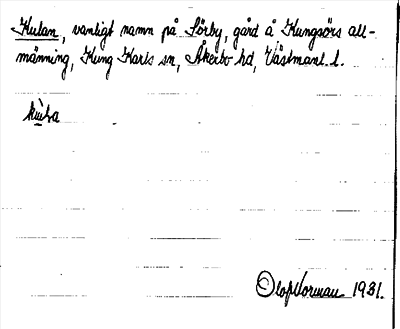 Kulan, vanligt namn på Sörby, gård å Kungsörs all-
männing, Kung Karls sn, Åkerbo hd, Västmanl. l.
Olof Norman 1931.